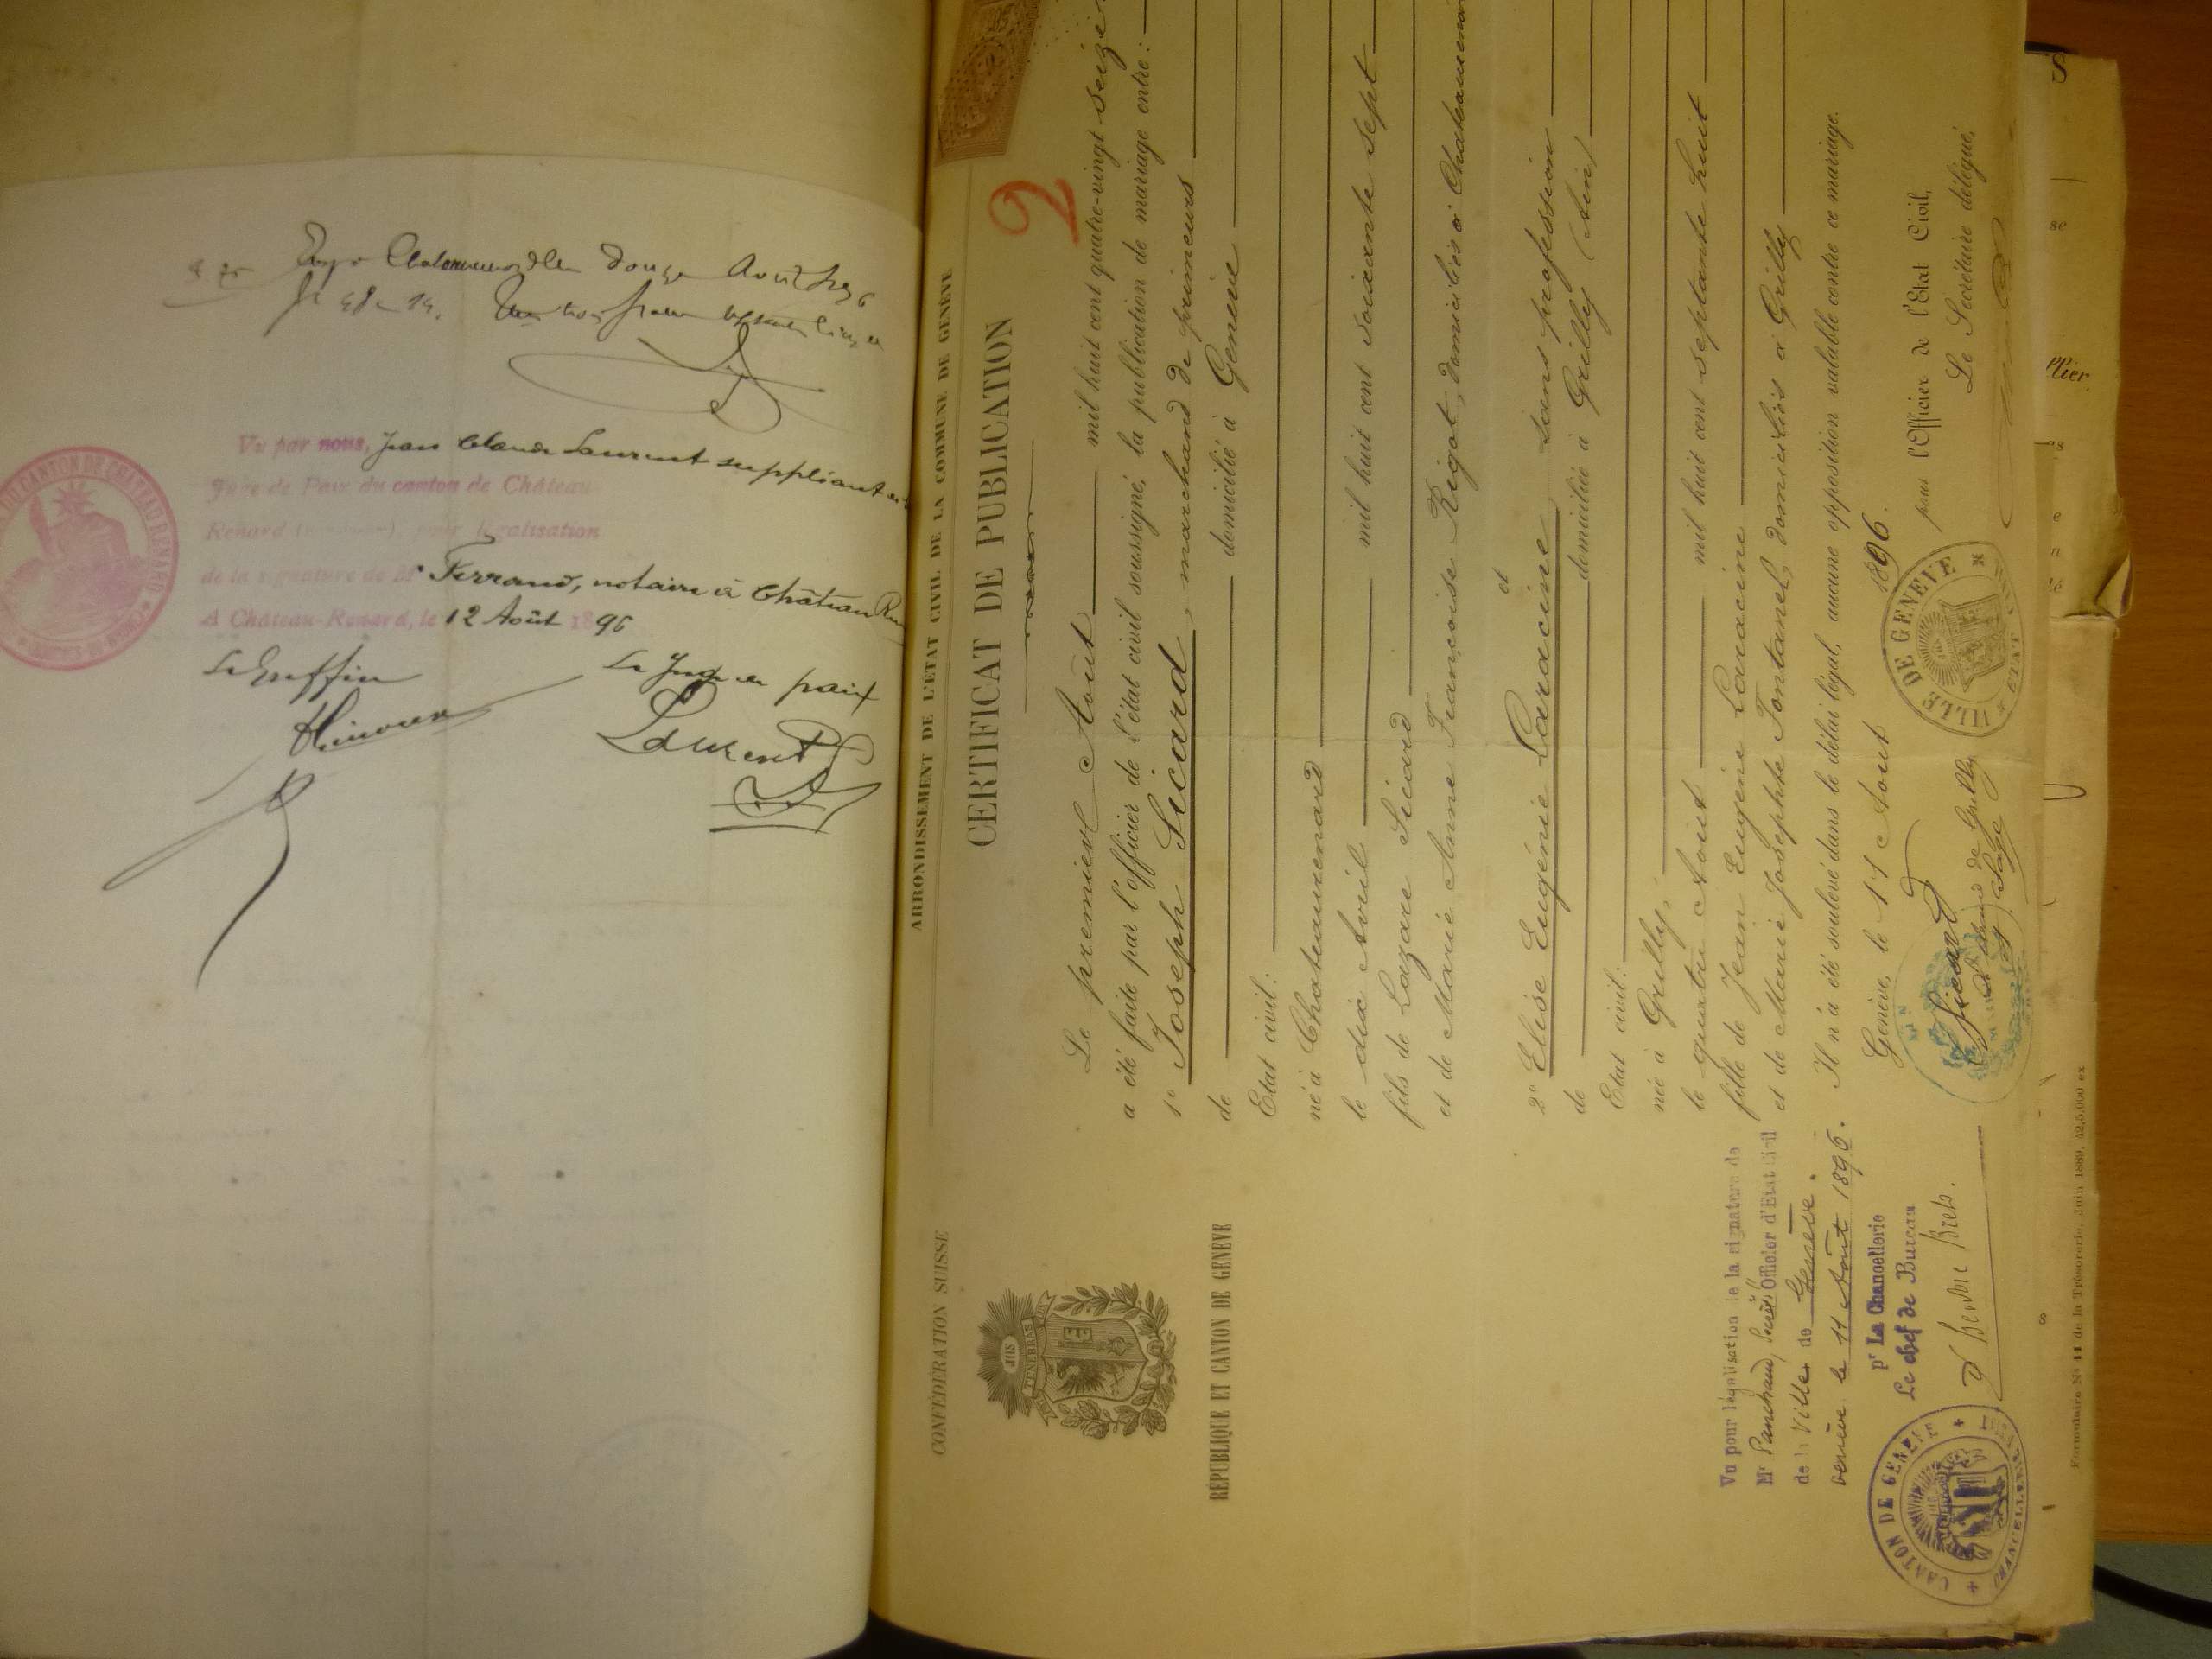 douze Août
Vu par nous, Jean Claude Laurent suppléant
Juge de Paix du canton de Château-
Renard pour légalisation
de la signature de Mr Ferrand, notaire à Château Ren
A Château-Renard, le 12 Août 1896
Le Greffier
Le Juge de paix
Laurent
DU CANTON DE CHATEAURENARD
CONFÉDÉRATION SUISSE
JUS
TENEBRAS
RÉPUBLIQUE ET CANTON DE GENÈVE
ARRONDISSEMENT DE L'ÉTAT CIVIL DE LA COMMUNE DE GENÈVE
CERTIFICAT DE PUBLICATION
2
Le premier Août mil huit cent quatre-vingt-seize
a été faite par l'officier de l'état civil soussigné, la publication de mariage entre :
1º Joseph Sicard, marchand de primeurs
de domicilié à Genève
Etat civil :
né à Chateaurenard
le dix Avril mil huit cent soixante sept
fils de Lazare Sicard
et de Marie Anne Françoise Rigot, domiciliés à Chateaurenard
et
2º Elise Eugénie Laracine sans profession
de domiciliée à Grilly (Ain)
Etat civil :
née à Grilly,
le quatre Août mil huit cent septante huit
fille de Jean Eugène Laracine
et de Marie Josephte Fontanel, domiciliés à Grilly
Il n'a été soulevé dans le délai légal, aucune opposition valable contre ce mariage.
Genève, le 11 Août 1896.
pour l'Officier de l'Etat Civil,
Le Secrétaire délégué,
VILLE DE GENÈVE
ETAT CIVIL
Sicard
Grilly
Vu pour légalisation de la signature de
Mr Panchaud, Secrét. Officier d'Etat Civil
de la Ville de Genève.
Genève le 11 Août 1896.
pr La Chancellerie
Le chef de Bureau
CANTON DE GENÈVE
CHANCELLERIE
Formulaire Nº 11 de la Trésorerie. Juin 1889. 42,5,000 ex